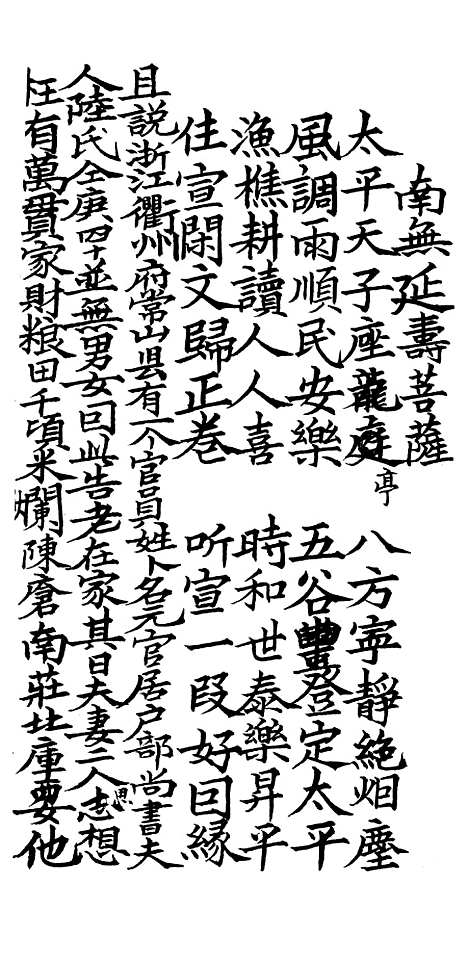 南無延壽菩薩
太平天子座龍庭 亭 八方寜靜絶烟塵
風調雨順民安樂 五谷豐登定太平
漁樵耕讀人人喜 時和世泰樂昇平
住宣閑文歸正卷 听宣一段好回緣
且説浙江衢州府常山县有一个官員姓卜名元官居户部尚書夫
人陸氏仝庚四十並無男女回此告老在家其日夫妻二人志思想
枉有萬貫家財粮田千頃米爛陳倉南莊北庫要他